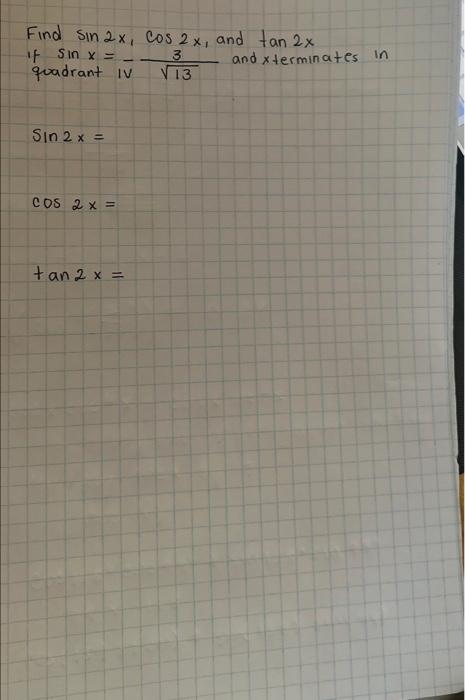 Find sin 2x, cos 2x, and tan 2x
if sin x = - 3/√13 and x terminates in
quadrant IV
sin 2x =
cos 2x =
tan 2x =